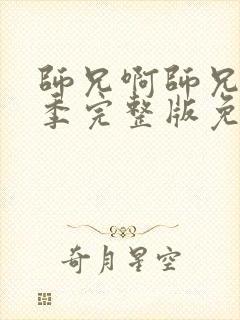 師兄啊師兄
季完整版免
奇月星空